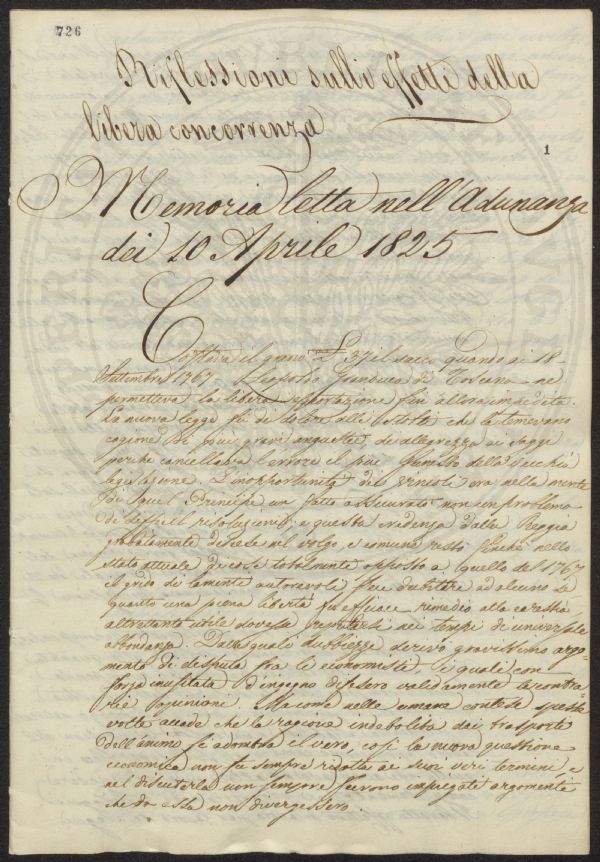 726
Riflessioni sulli effetti della
libera concorrenza
1
Memoria letta nell'Adunanza
dei 10 Aprile 1825
Costava il grano £ 37 il sacco quando ai 18
Settembre 1767 Leopoldo Granduca di Toscana ne
permetteva la libera esportazione fin allora impedita.
La nuova legge fu di dolore alli stolti che la temevano
cagione di più gravi angustie, di allegrezza ai saggi
perchè cancellava l'errore il più funesto della vecchia
legislazione. L'inopportunità dei vincoli era nella mente
di quel Principe un fatto assicurato non un problema
di difficil risoluzione, e questa evidenza dalla Reggia
gradatamente discese nel volgo, e comune restò finchè nello
stato attuale di cose totalmente opposto a quello del 1767
il grido di lamento autorevoli fece dubitare ad alcuno se
quanto una piena libertà fu efficace rimedio alla carestia
altrettanto utile dovesse reputarsi nei tempi di universale
abbondanza. Dalle quali dubbiezze derivò gravissimo argo-
mento di disputa fra li economisti, i quali con
forza inusitata d'ingegno difesero validamente le contra-
rie opinioni. Ma come nelle umane contese spesse
volte accade che la ragione indebolita dai trasporti
dell'animo si adombra il vero, così la nuova questione
economica non fu sempre ridotta ai suoi veri termini, e
nel discuterla non sempre furono impiegati argomenti
che da essa non divergessero.